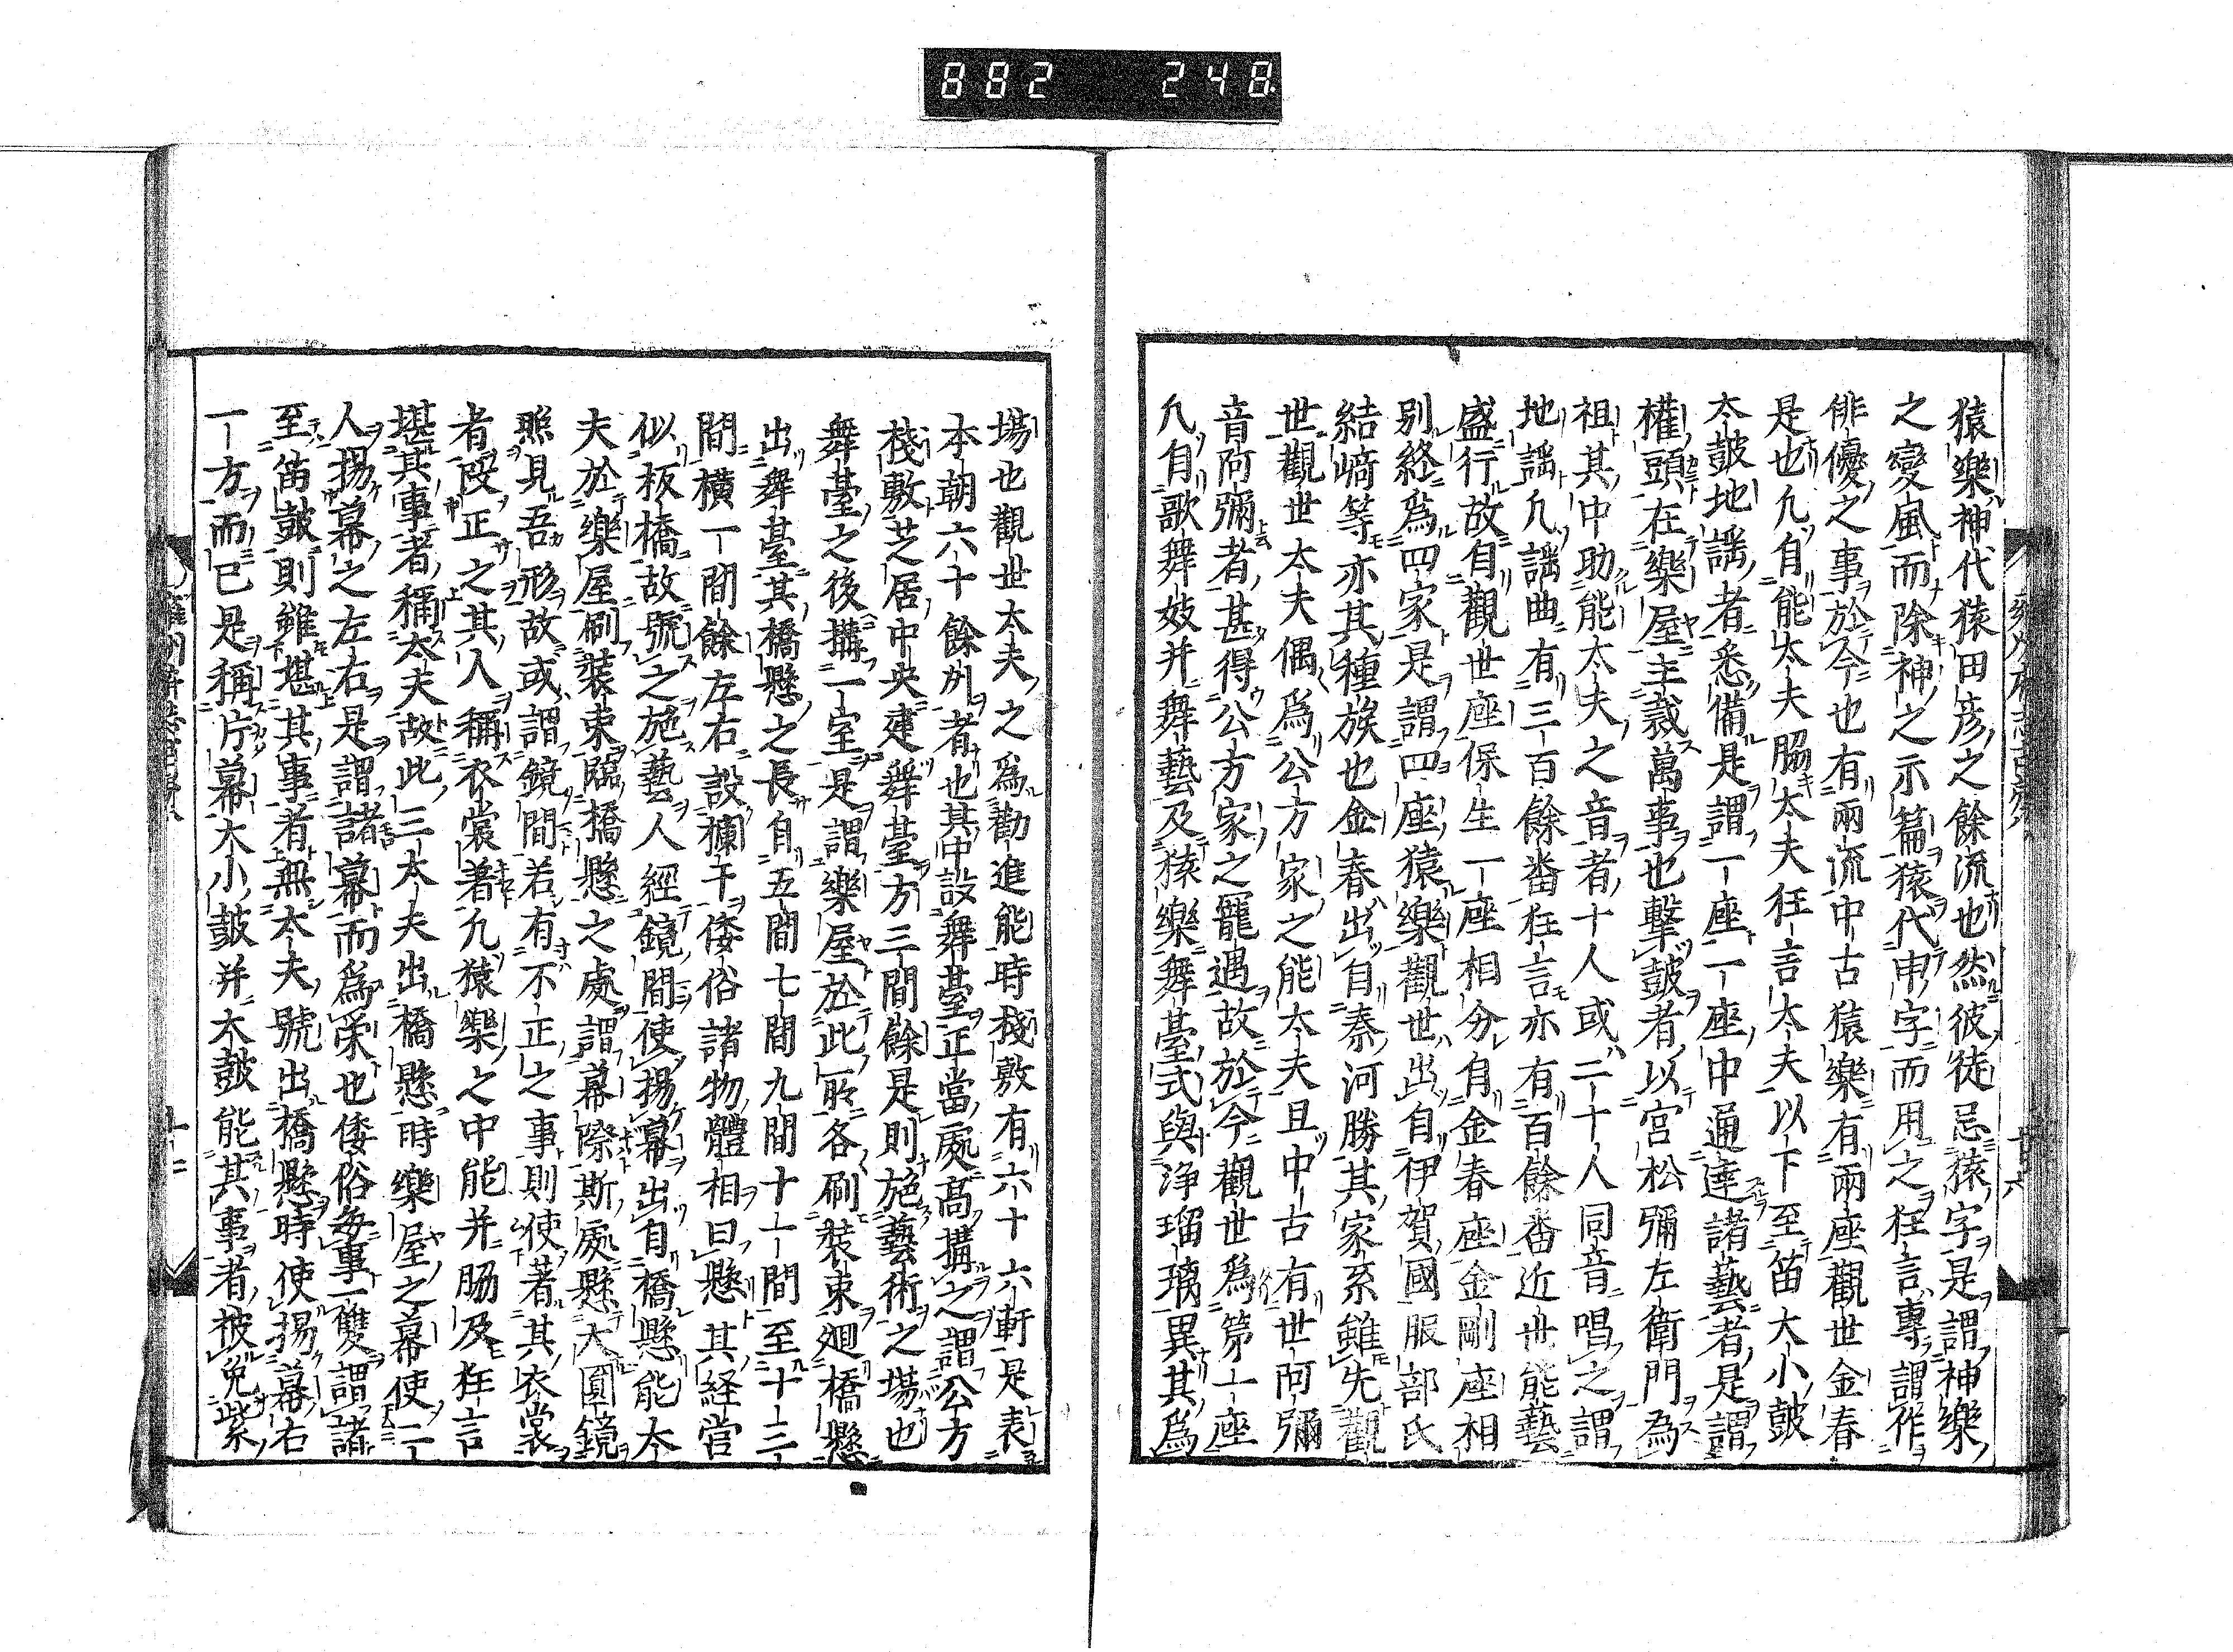 882 248
猿樂神代猿田彦之餘流也然彼徒忌猿字是謂神樂
之變風而除神之示篇猿代申字而用之狂言專謂作
俳優之事於今也有兩流中古猿樂有兩座觀世金春
是也凢自能太夫脇太夫狂言太夫以下至笛大小鼓
太鼓地謡者悉備是謂一座一座中通達諸藝者是謂
權頭在樂屋主裁萬事也擊鼓者以宮松彌左衛門為
祖其中助能太夫之音者十人或二十人同音唱之謂
地謡凢謡曲有三百餘番狂言亦有百餘番近世能藝
盛行故自觀世座保生一座相分自金春座金剛座相
別終為四家是謂四座猿樂觀世出自伊賀國服部氏
結﨑等亦其種族也金春出自秦河勝其家系雖先觀
世觀世太夫偶為公方家之能太夫且中古有世阿彌
音阿彌者甚得公方家之寵遇故於今觀世為第一座
凢自歌舞妓并舞藝及猿樂舞臺式與浄瑠璃異其為
塲也觀世太夫之為勸進能時棧敷有六十六軒是表
本朝六十餘州者也其中設舞臺正當處高搆之謂公方
棧敷芝居中央建舞臺方三間餘是則施藝術之塲也
舞臺之後搆一室是謂樂屋於此所各刷裝束廻橋懸
出舞臺其橋懸之長自五間七間九間十一間至十三
間横一間餘左右設欄干倭俗諸物體相曰懸其経営
似板橋故號之施藝人經鏡間使揚幕出自橋懸能太
夫於樂屋刷裝束臨橋懸之處謂幕際斯處懸大圓鏡
照見吾形故或謂鏡間若有不正之事則使著其衣裳
者段正之其人稱衣裳著凢猿樂之中能并脇及狂言
堪其事者稱太夫故此三太夫出橋懸時樂屋之幕使二
人揚幕之左右是謂諸幕而為榮也倭俗毎事一雙謂諸
至笛鼓則雖堪其事者無太夫號出橋懸時使揚幕右
一方而已是稱片幕大小鼓并太鼓能其事者被免紫